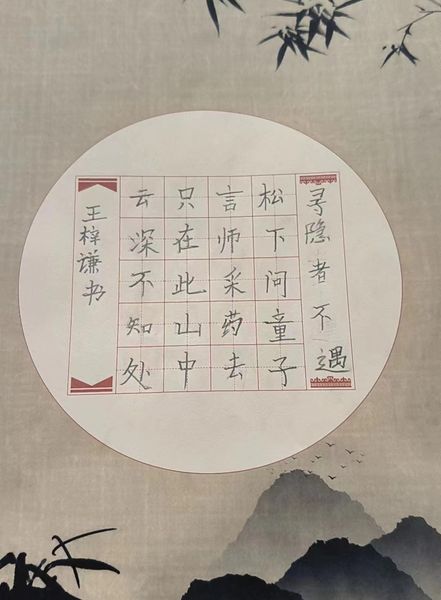 寻隐者不遇
松下问童子
言师采药去
只在此山中
云深不知处
王梓谦书